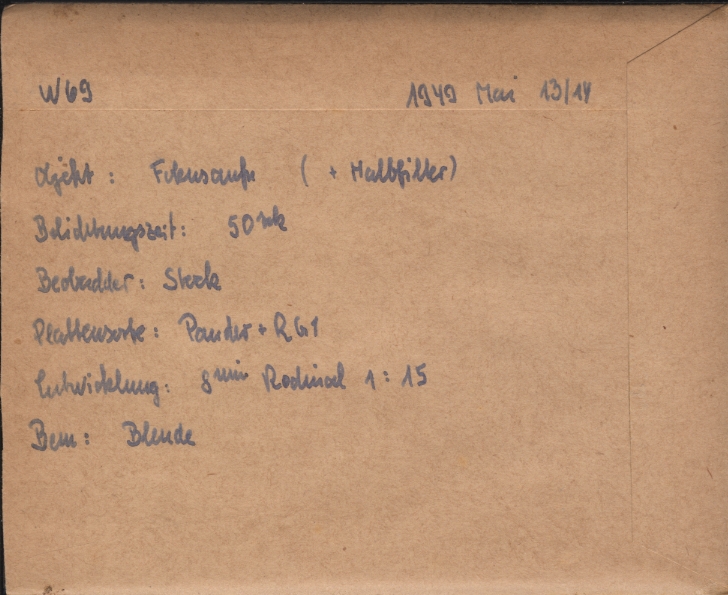 W69 1949 Mai 13/14
Objekt: Fokusaufn ( + Halbfilter)
Belichtungszeit: 50 sek
Beobachter: Stock
Plattensorte: Pander + RG1
Entwicklung: 8 min Rodinal 1:15
Bem: Blende